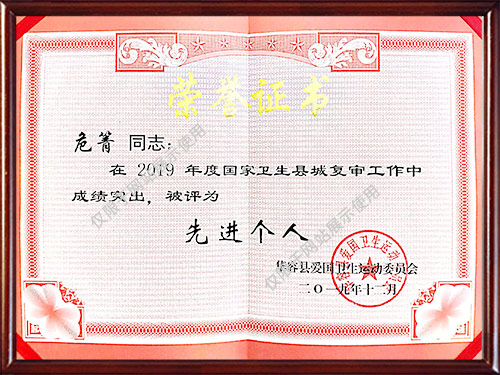 荣誉证书
危箐 同志:
在 2019 年度国家卫生县城复审工作中
成绩突出，被评为
先进个人
华容县爱国卫生运动委员会
二〇一九年十二月
华容县爱国卫生运动委员会
仅限于网站展示使用
仅限于网站展示使用